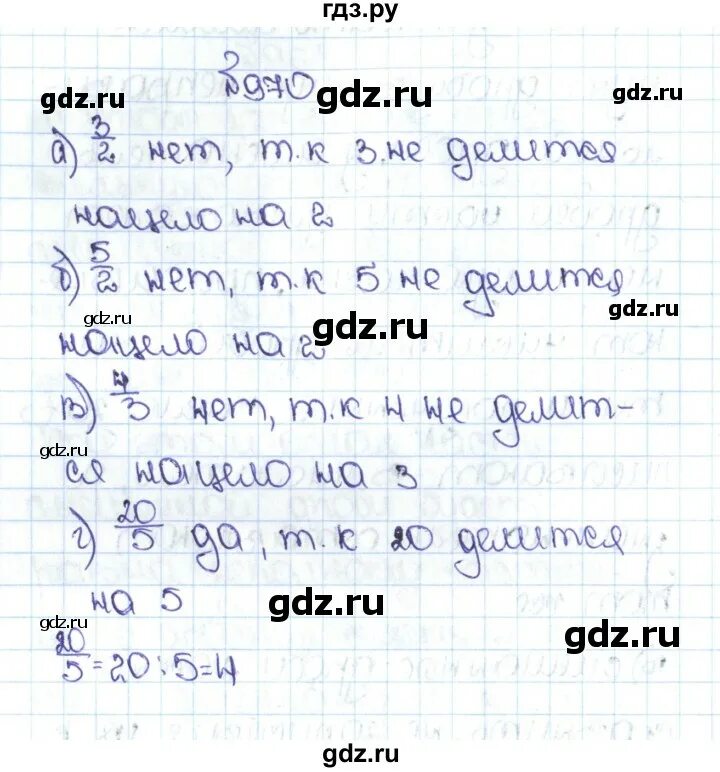 гдз.ру
№970
gdz.ru gdz.ru gdz.ru
а) 3/2 нет, т.к 3 не делится
нацело на 2
б) 5/2 нет, т.к 5 не делится
gdz.ru gdz.ru gdz.ru
нацело на 2
в) 4/3 нет, т.к 4 не делит-
gdz.ru
ся нацело на 3
г) 20/5 да, т.к 20 делится
на 5
gdz.ru gdz.ru gdz.ru
20/5=20:5=4
gdz.ru